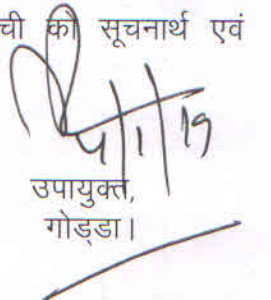 ची को सूचनार्थ एवं
4/1/19
उपायुक्त,
गोड्डा।